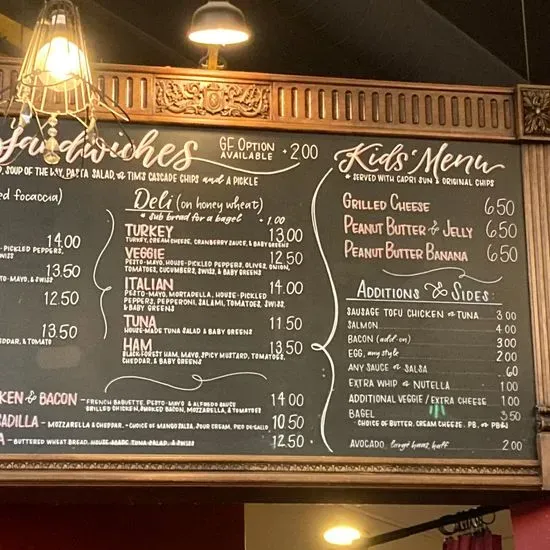 Sandwiches
GF OPTION AVAILABLE +2.00
SOUP OF THE DAY, PASTA SALAD, or TIM'S CASCADE CHIPS and A PICKLE
focaccia)
14.00
-PICKLED PEPPERS,
13.50
-MAYO, & SWISS
12.50
13.50
& TOMATO
Deli (on honey wheat)
* sub bread for a bagel + 1.00
TURKEY 13.00
TURKEY, CREAM CHEESE, CRANBERRY SAUCE, & BABY GREENS
VEGGIE 12.50
PESTO-MAYO, HOUSE-PICKLED PEPPERS, OLIVES, ONION,
TOMATOES, CUCUMBERS, SWISS, & BABY GREENS
ITALIAN 14.00
PESTO-MAYO, MORTADELLA, HOUSE-PICKLED
PEPPERS, PEPPERONI, SALAMI, TOMATOES, SWISS,
& BABY GREENS
TUNA 11.50
HOUSE-MADE TUNA SALAD & BABY GREENS
HAM 13.50
BLACK FOREST HAM, MAYO, SPICY MUSTARD, TOMATOES,
CHEDDAR, & BABY GREENS
& BACON - FRENCH BAGUETTE, PESTO-MAYO & ALFREDO SAUCE 14.00
GRILLED CHICKEN, SMOKED BACON, MOZZARELLA, & TOMATOES
- MOZZARELLA & CHEDDAR, - CHOICE OF MANGO SALSA, SOUR CREAM, PICO DE GALLO 10.50
- BUTTERED WHEAT BREAD, HOUSE MADE TUNA SALAD, & SWISS 12.50
Kids' Menu
* SERVED WITH CAPRI SUN & ORIGINAL CHIPS
GRILLED CHEESE 6.50
PEANUT BUTTER & JELLY 6.50
PEANUT BUTTER BANANA 6.50
ADDITIONS & SIDES:
SAUSAGE TOFU CHICKEN or TUNA 3.00
SALMON 4.00
BACON (add-on) 3.00
EGG, any style 2.00
ANY SAUCE or SALSA .60
EXTRA WHIP or NUTELLA 1.00
ADDITIONAL VEGGIE / EXTRA CHEESE 1.00
BAGEL 3.50
- CHOICE OF BUTTER, CREAM CHEESE, PB, or PB&J
AVOCADO, large haas, half 2.00